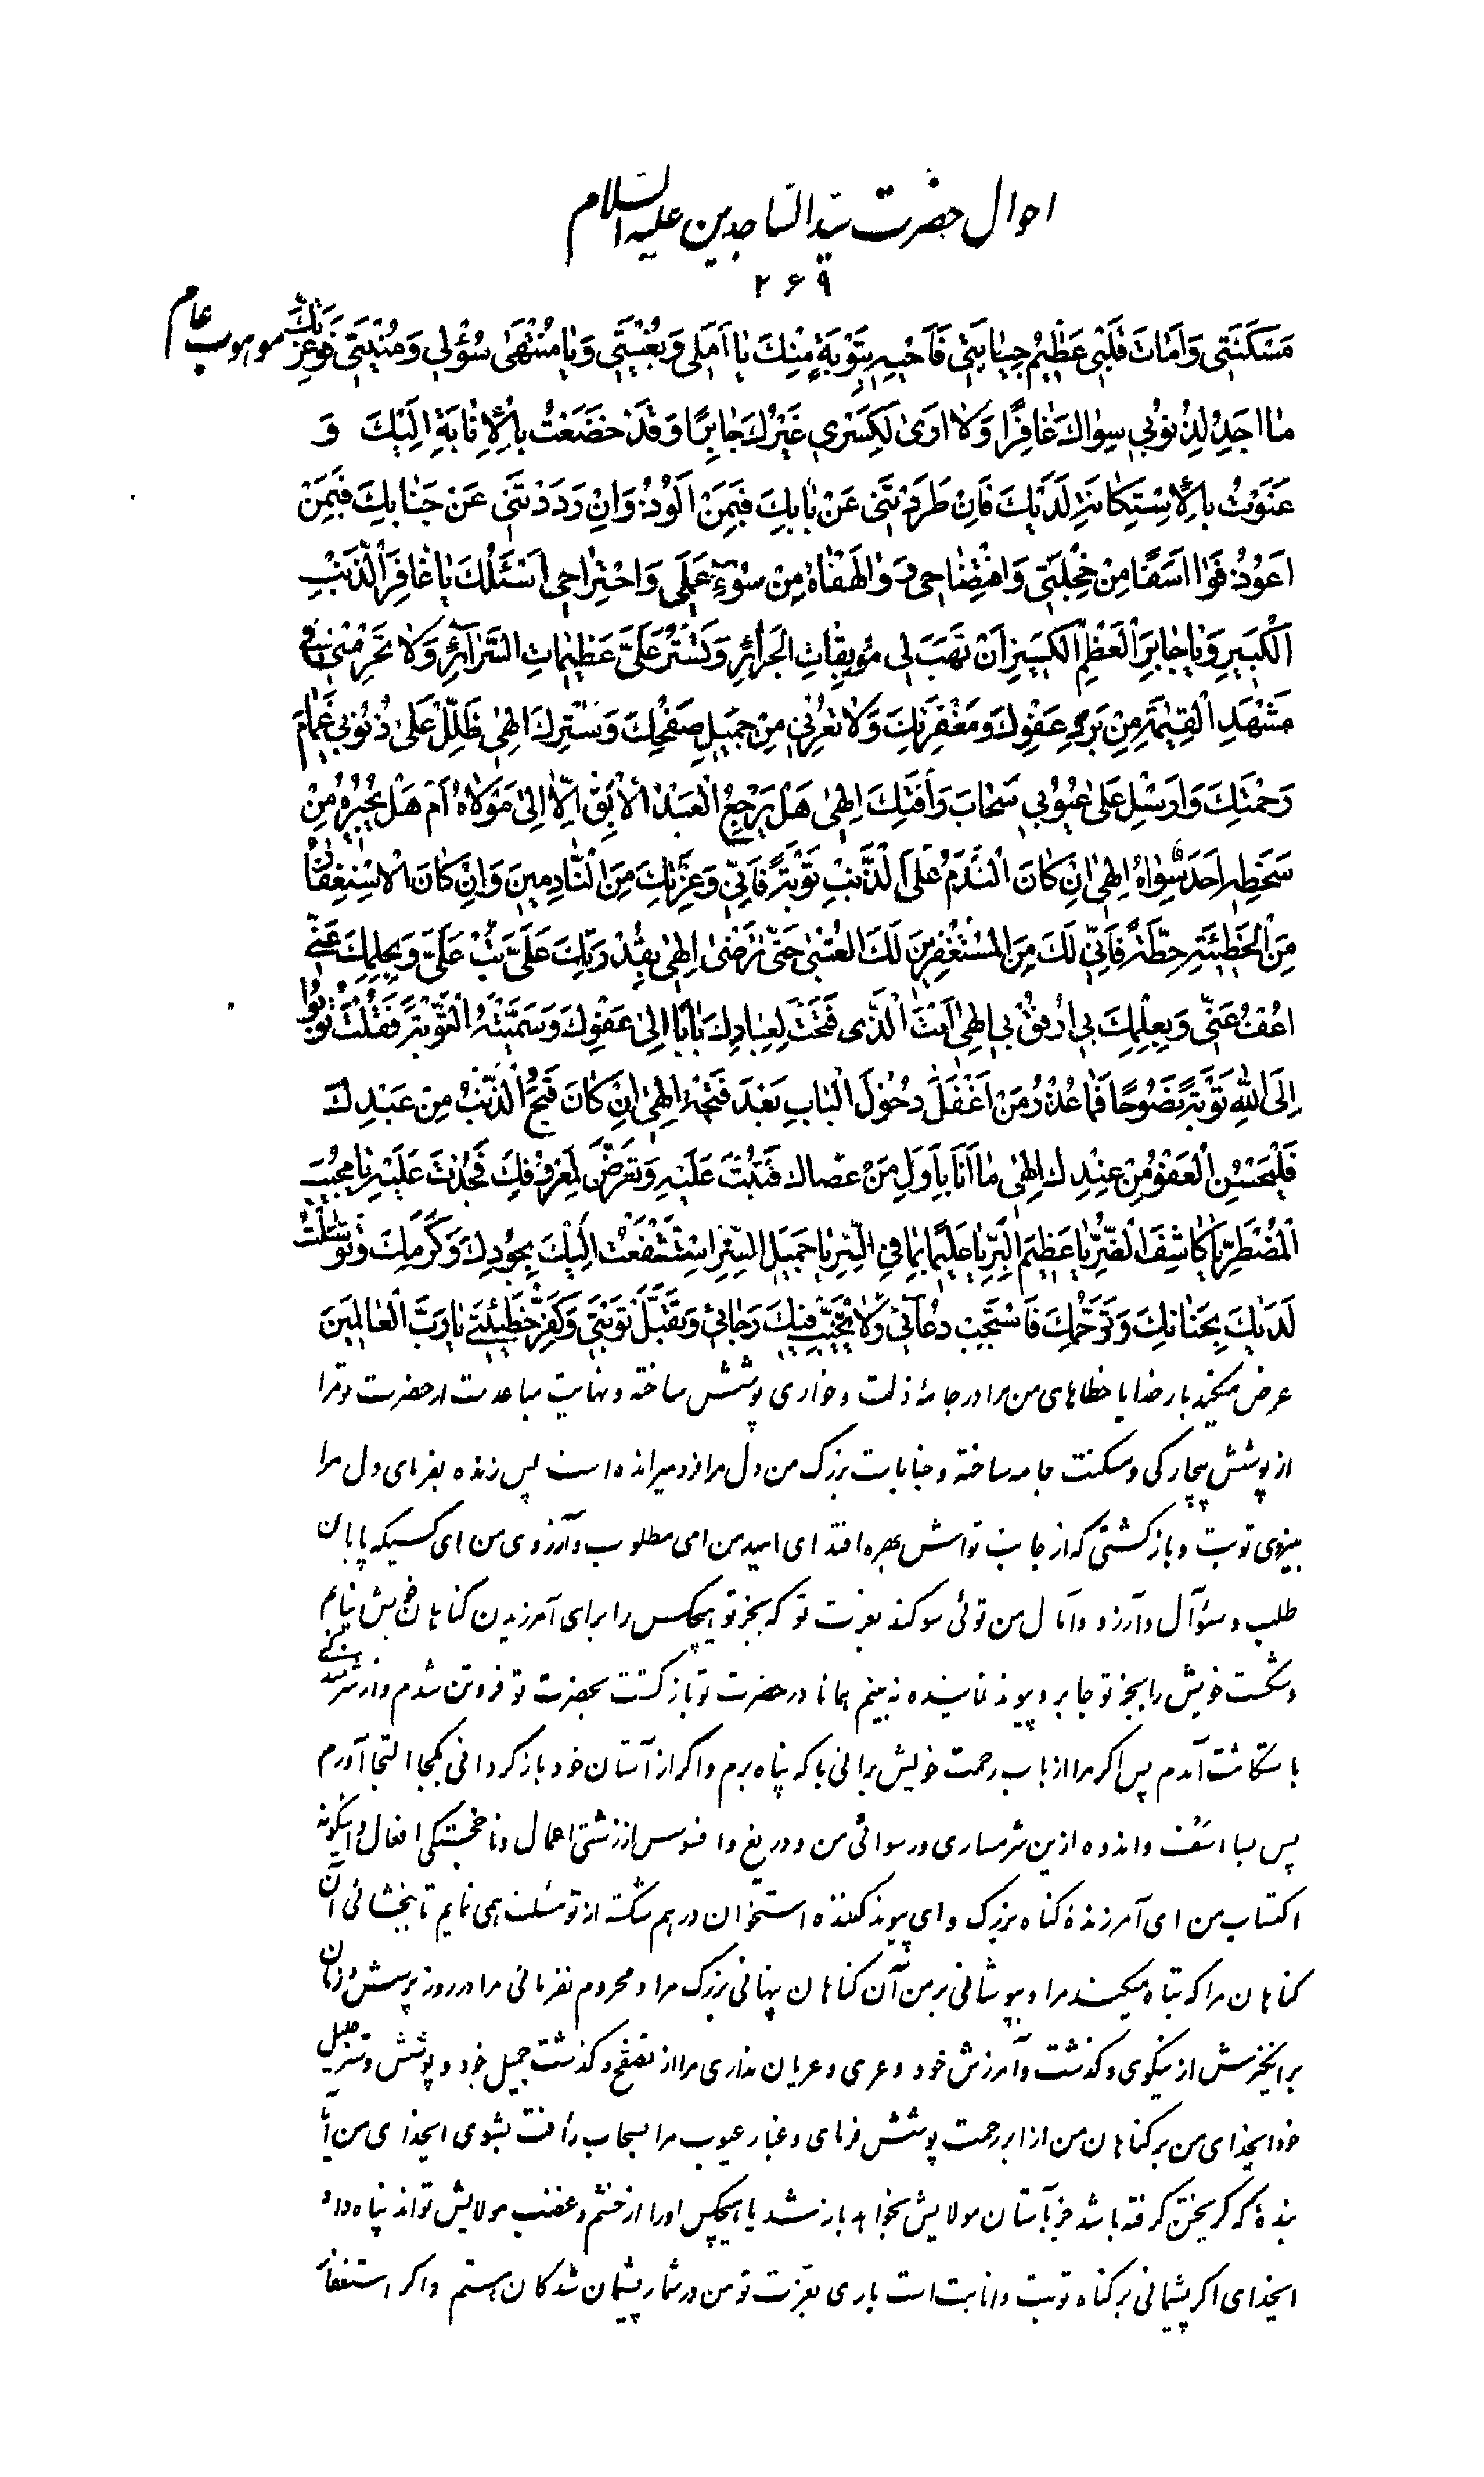 احوال حضرت سیّد السّاجدین علیه السّلام
۲۶۹
مَسْكَنَتی وَاَمٰاتَ قَلْبی عَظیمُ جِنٰایَتی فَاَحْیِهِ بِتَوْبَةٍ مِنْكَ یٰا اَمَلی وَبُغْیَتی وَیٰا مُنْتَهیٰ سُؤْلی وَمُنْیَتی فَوَعِزَّتِكَ
موهوب عام
مٰا اَجِدُ لِذُنُوبی سِوٰاكَ غٰافِرًا وَلٰا اَرىٰ لِكَسْری غَیْرَكَ جٰابِرًا وَقَدْ خَضَعْتُ بِالْاِنٰابَةِ اِلَیْكَ وَ
عَنَوْتُ بِالْاِسْتِكٰانَةِ لَدَیْكَ فَاِنْ طَرَدْتَنی عَنْ بٰابِكَ فَبِمَنْ اَلُوذُ وَاِنْ رَدَدْتَنی عَنْ جَنٰابِكَ فَبِمَنْ
اَعُوذُ فَوٰا اَسَفٰا مِنْ خَجْلَتی وَافْتِضٰاحی وَ وٰالَهْفٰاهُ مِنْ سُوۤءِ عَمَلی وَاجْتِرٰاحی اَسْئَلُكَ یٰا غٰافِرَ الذَّنْبِ
الْكَبیرِ وَیٰا جٰابِرَ الْعَظْمِ الْكَسیرِ اَنْ تَهَبَ لی مُوبِقٰاتِ الْجَرٰائِرِ وَتَسْتُرَ عَلَیَّ عَظیمٰاتِ السَّرٰائِرِ وَلٰا تَحْرِمْنی فی
مَشْهَدِ الْقِیٰمَةِ مِنْ بَرْدِ عَفْوِكَ وَمَغْفِرَتِكَ وَلٰا تُعْرِنی مِنْ جَمیلِ صَفْحِكَ وَسَتْرِكَ اِلٰهی ظَلِّلْ عَلىٰ ذُنُوبی غَمٰامَ
رَحْمَتِكَ وَاَرْسِلْ عَلىٰ عُیُوبی سَحٰابَ رَاْفَتِكَ اِلٰهی هَلْ یَرْجِعُ الْعَبْدُ الْاٰبِقُ اِلّٰا اِلىٰ مَوْلٰاهُ اَمْ هَلْ یُجیرُهُ مِنْ
سَخَطِهِ اَحَدٌ سِوٰاهُ اِلٰهی اِنْ كٰانَ النَّدَمُ عَلَی الذَّنْبِ تَوْبَةً فَاِنّی وَعِزَّتِكَ مِنَ النّٰادِمینَ وَاِنْ كٰانَ الْاِسْتِغْفٰارُ
مِنَ الْخَطیئَةِ حِطَّةً فَاِنّی لَكَ مِنَ الْمُسْتَغْفِرینَ لَكَ الْعُتْبىٰ حَتّىٰ تَرْضىٰ اِلٰهی بِقُدْرَتِكَ عَلَیَّ تُبْ عَلَیَّ وَبِحِلْمِكَ عَنّی
اعْفُ عَنّی وَبِعِلْمِكَ بی اُرْفُقْ بی اِلٰهی اَنْتَ الَّذی فَتَحْتَ لِعِبٰادِكَ بٰابًا اِلىٰ عَفْوِكَ وَسَمَّیْتَهُ التَّوْبَةَ فَقُلْتَ تُوبُوا
اِلَى اللّٰهِ تَوْبَةً نَصُوحًا فَمٰا عُذْرُ مَنْ اَغْفَلَ دُخُولَ الْبٰابِ بَعْدَ فَتْحِهِ اِلٰهی اِنْ كٰانَ قَبُحَ الذَّنْبُ مِنْ عَبْدِكَ
فَلْیَحْسُنِ الْعَفْوُ مِنْ عِنْدِكَ اِلٰهی مٰا اَنَا بِاَوَّلِ مَنْ عَصٰاكَ فَتُبْتَ عَلَیْهِ وَتَعَرَّضَ لِمَعْرُوفِكَ فَجُدْتَ عَلَیْهِ یٰا مُجیبَ
الْمُضْطَرِّ یٰا كٰاشِفَ الضُّرِّ یٰا عَظیمَ الْبِرِّ یٰا عَلیمًا بِمٰا فِی السِّرِّ یٰا جَمیلَ السِّتْرِ اسْتَشْفَعْتُ اِلَیْكَ بِجُودِكَ وَكَرَمِكَ وَتَوَسَّلْتُ
لَدَیْكَ بِحَنٰانِكَ وَتَرَحُّمِكَ فَاسْتَجِبْ دُعٰائی وَلٰا تُخَیِّبْ فیكَ رَجٰائی وَتَقَبَّلْ تَوْبَتی وَكَفِّرْ خَطیئَتی یٰا رَبَّ الْعٰالَمینَ
عرض میکند بار خدایا خطاهای من مرا در جامهٔ ذلت و خواری پوشش ساخته و نهایت مباعدت از حضرت تو مرا
از پوشش بیچارکی و مسکنت جامه ساخته و جنایات بزرک من دل مرا فرو میرانده است پس زنده بفرمای دل مرا
بنیروی توبت و بازکشتی که از جانب تواش بهره افتد ای امید من ای مطلوب و آرزوی من ای کسیکه پایان
طلب و سؤآل و آرزو و آمال من توئی سوکند بعزت تو که بجز تو هیچکس را برای آمرزیدن کناهان خویش نیابم
و شکست خویش را بجز تو جابر و پیوند نماینده نه بینم همانا در حضرت تو بازکشت بحضرت تو فروتن شدم و از شرمندکی
باستکانت آمدم پس اکر مرا از باب رحمت خویش برانی با که پناه برم و اکر از آستان خود بازکردانی بکجا التجا آورم
پس بسا اسف و اندوه ازین شرمساری و رسوائی من و دریغ و افسوس از زشتی اعمال و ناخجستکی افعال و اینکونه
اکتساب من ای آمرزندهٔ کناه بزرک و ای پیوند کننده استخوان درهم شکسته از تو مسئلت همی نمایم تا ببخشائی آن
کناهان مرا که تباه میکنند مرا و بپوشانی بر من آن کناهان پنهانی بزرک مرا و محروم نفرمائی مرا در روز پرسش و زمان
برانکیزش از نیکوی و کذشت و آمرزش خود و عری و عریان نداری مرا از تصفح و کذشت جمیل خود و پوشش و ستر جلیل
خود ایخدای من بر کناهان من از ابر رحمت پوشش فرمای و غبار عیوب مرا بسحاب رأفت بشوی ایخدای من آیا
بندهٔ که کریختن کرفته باشد جز بآستان مولایش بخواهد باز شد یا هیچکس او را از خشم و غضب مولایش تواند پناه داد
ایخدای اکر پشیمانی بر کناه توبت و انابت است باری بعزت تو من در شمار پشیمان شدکان هستم و اکر استغفار